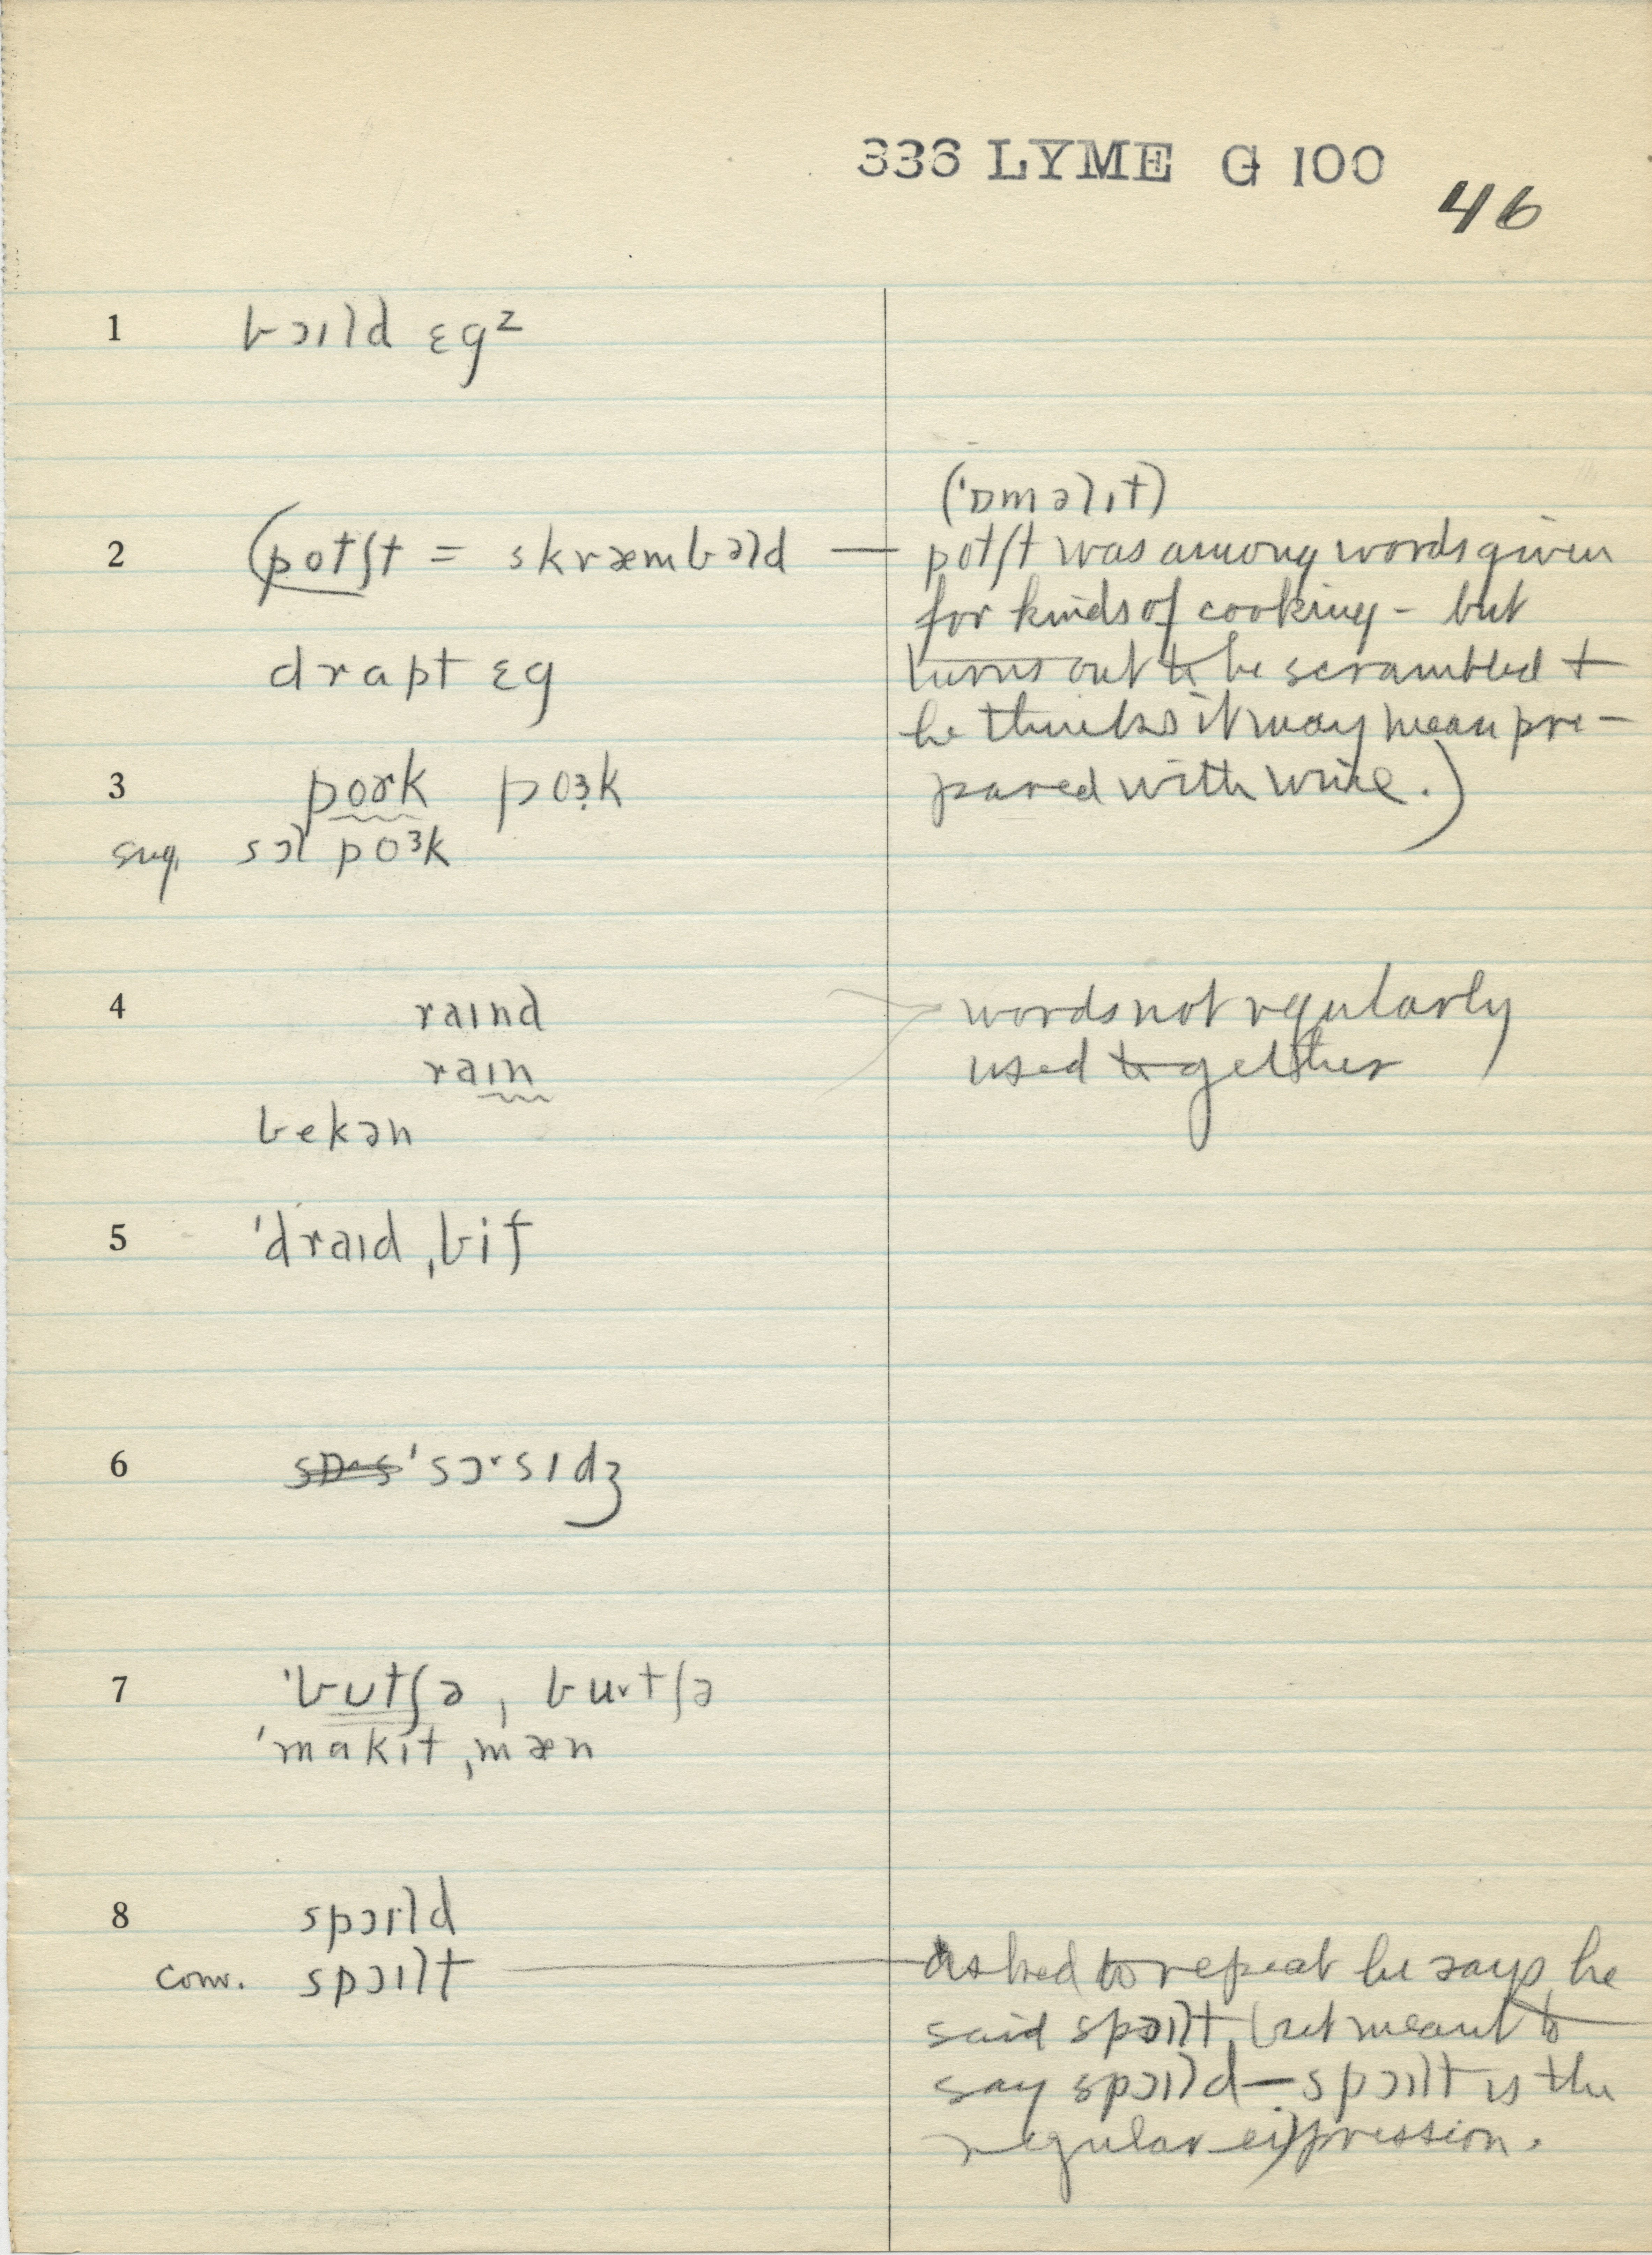 336 LYME G 100
46
1 bɔɪld ɛgᶻ
('ɒməlɪt)
2 (potʃt = skræmbəld — potʃt was among words given
for kinds of cooking - but
drapt ɛg turns out to be scrambled +
he thinks it may mean pre-
3 pork poɜk pared with wine.)
sug. sɔl poᶟk
4 raɪnd words not regularly
raɪn used together
bekən
5 'draɪd ˌbif
6 'sɔʳsɪdʒ
7 'bʊtʃə, buʳtʃə
'makɪt ˌmæn
8 spɔɪld
conv. spɔɪlt — asked to repeat he says he
said spɔɪlt, but meant to
say spɔɪld — spɔɪlt is the
regular expression.